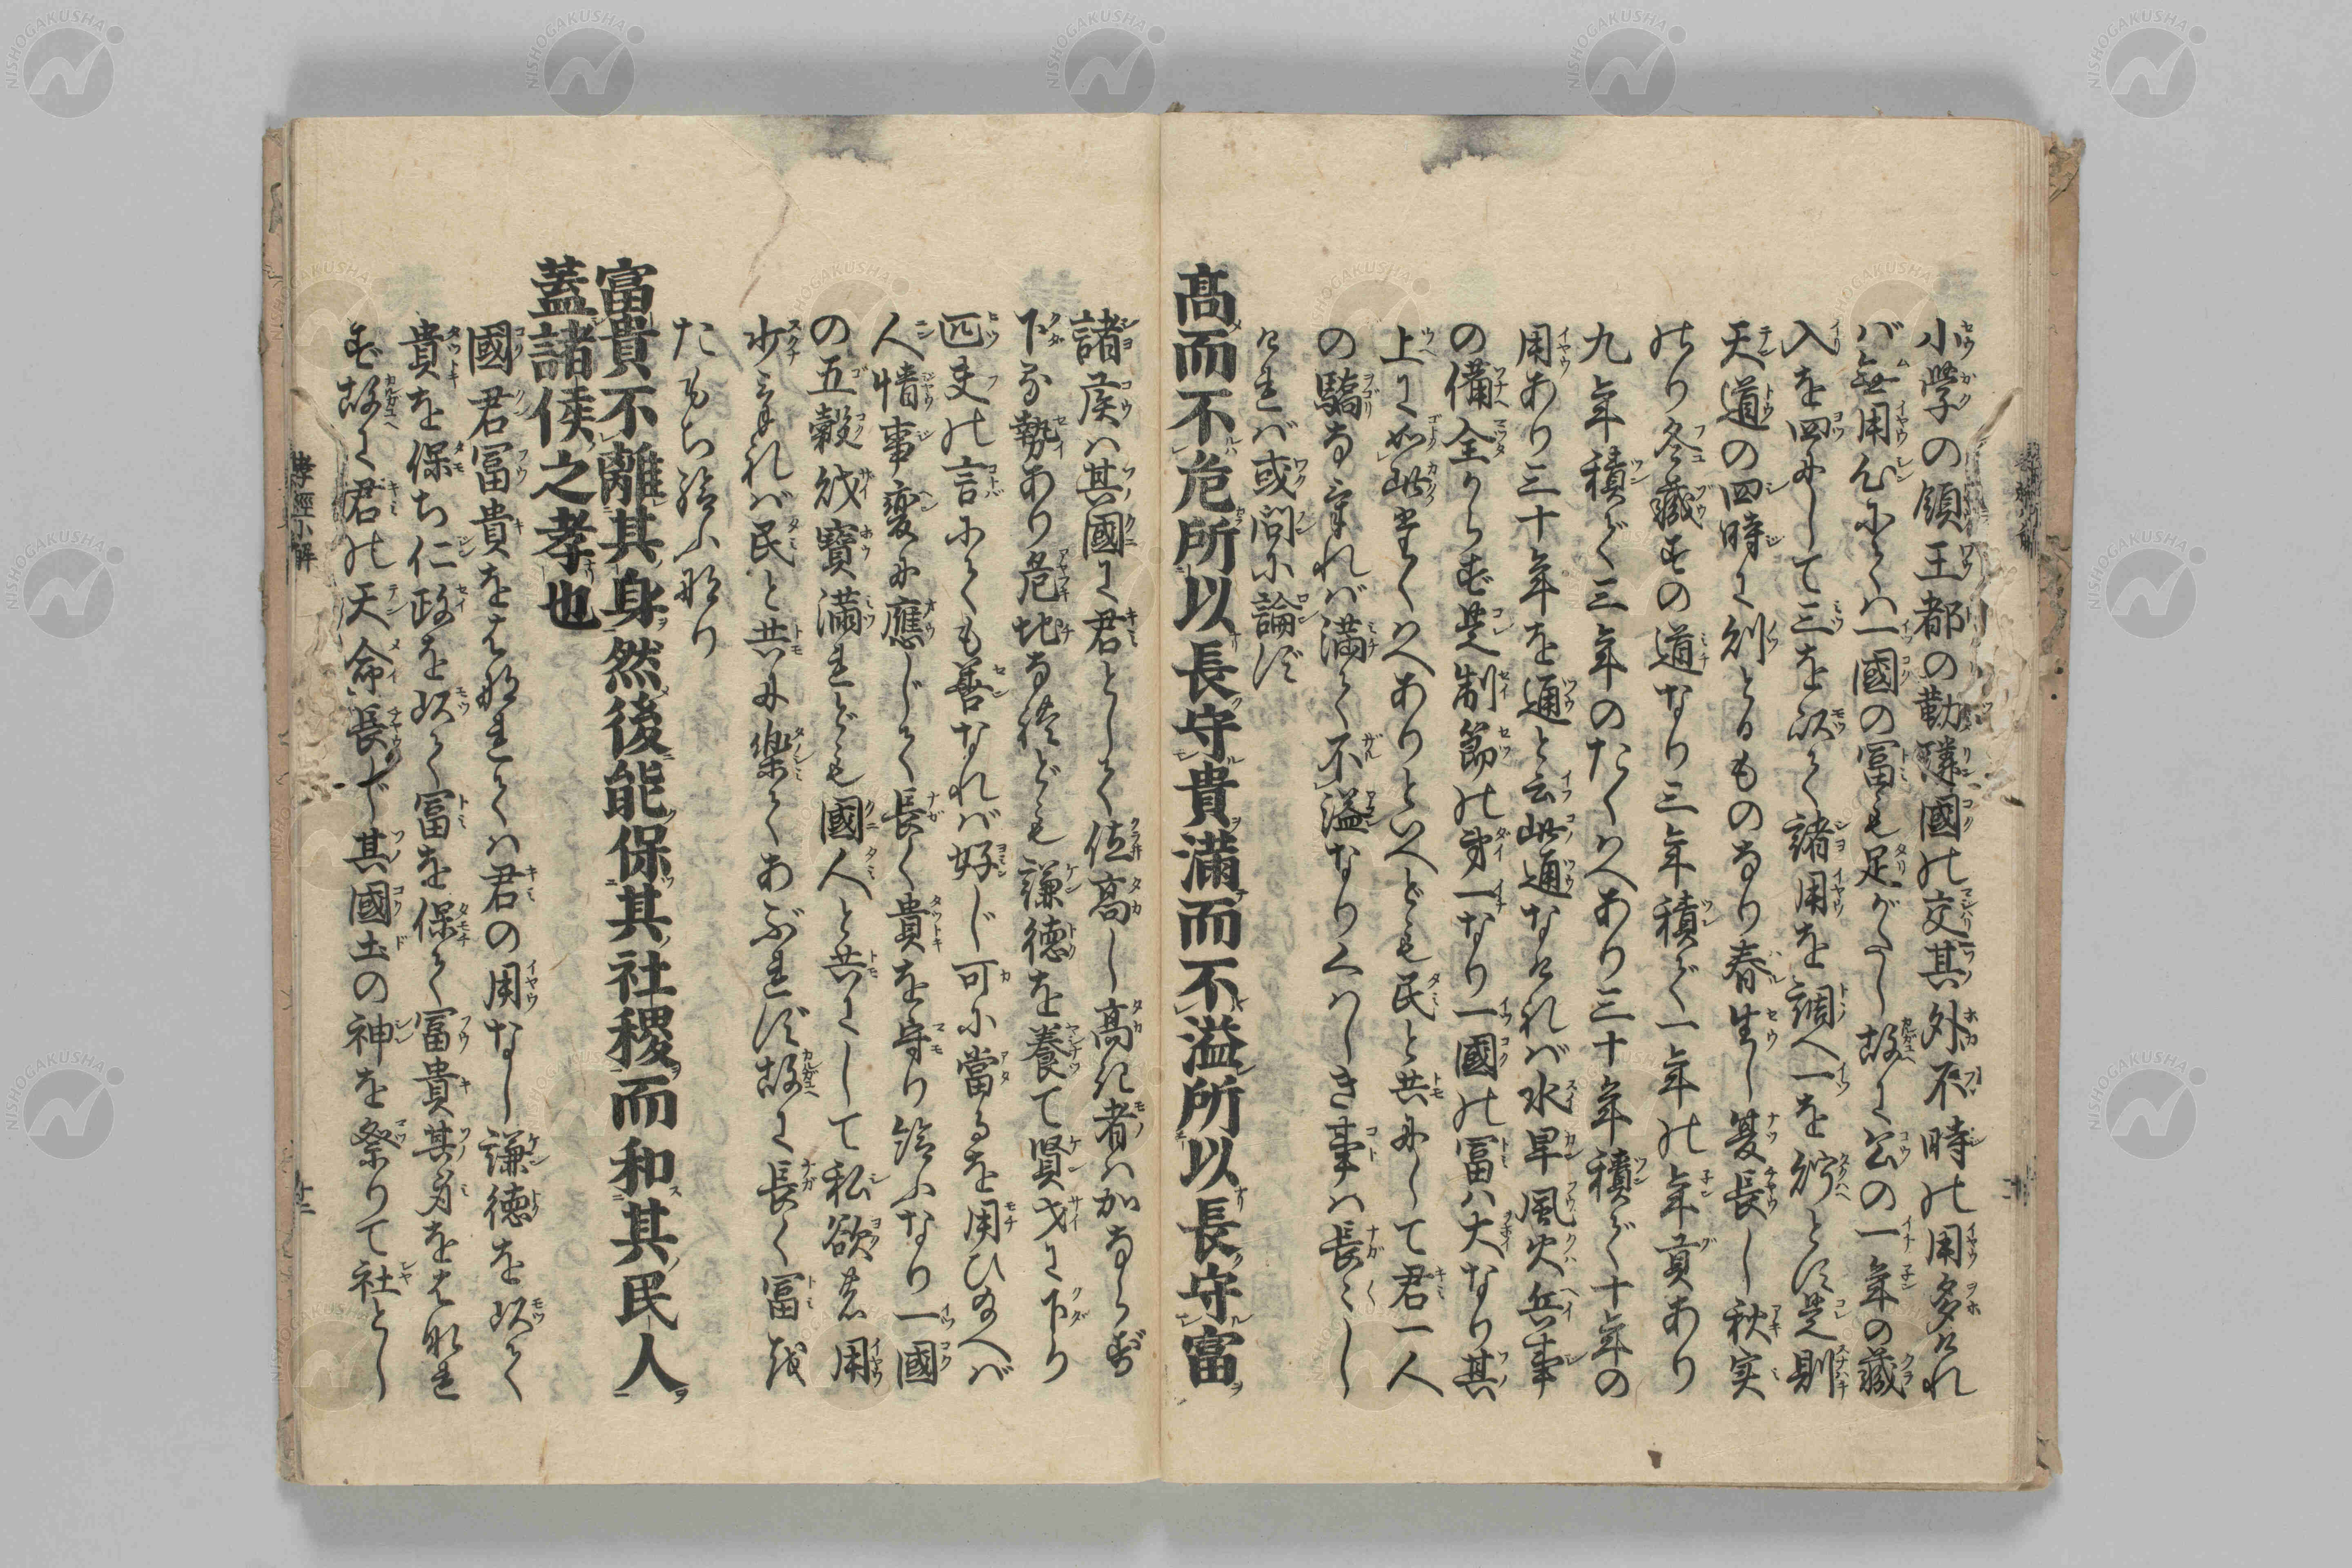 小学の領王都の勤隣國の交其外不時の用多けれ
バ無用心にてハ一國の冨も足がたし故に公の一年の蔵
入を四にして三を以て諸用を調へ一を貯とす是則
天道の四時に則とるものなり春生し夏長し秋実
のり冬蔵すの道なり三年積で一年の年貢あり
九年積で三年のたくハへあり三十年積で十年の
用あり三十年を通と云此通なければ水旱風火兵事
の備全からず是制節の第一なり一國の冨ハ大なり其
上に如此たくハへありといへども民と共にして君一人
の驕なければ満て不溢なりくハしき事ハ長々し
ければ或問に論ず
高而不危所以長守貴満而不溢所以長守富
諸侯ハ其國に君として位高し高き者ハ必ならず
下る勢あり危地なれども謙徳を養て賢才に下り
匹夫の言にても善なれば好じ可に當るを用ひ給へば
人情事變に應じて長く貴を守り給ふなり一國
の五穀財寶満れども國人と共にして私欲の用
少なければ民と共に樂てあぶれず故に長く冨を
たもち給ふ也
富貴不離其身然後能保其社稷而和其民人
蓋諸侯之孝也
國君冨貴をはなれてハ君の用なし謙徳を以て
貴を保ち仁政を以て冨を保て冨貴其身をはなれ
ず故に君の天命長じ其國土の神を祭りて社とし
孝經小解
十二